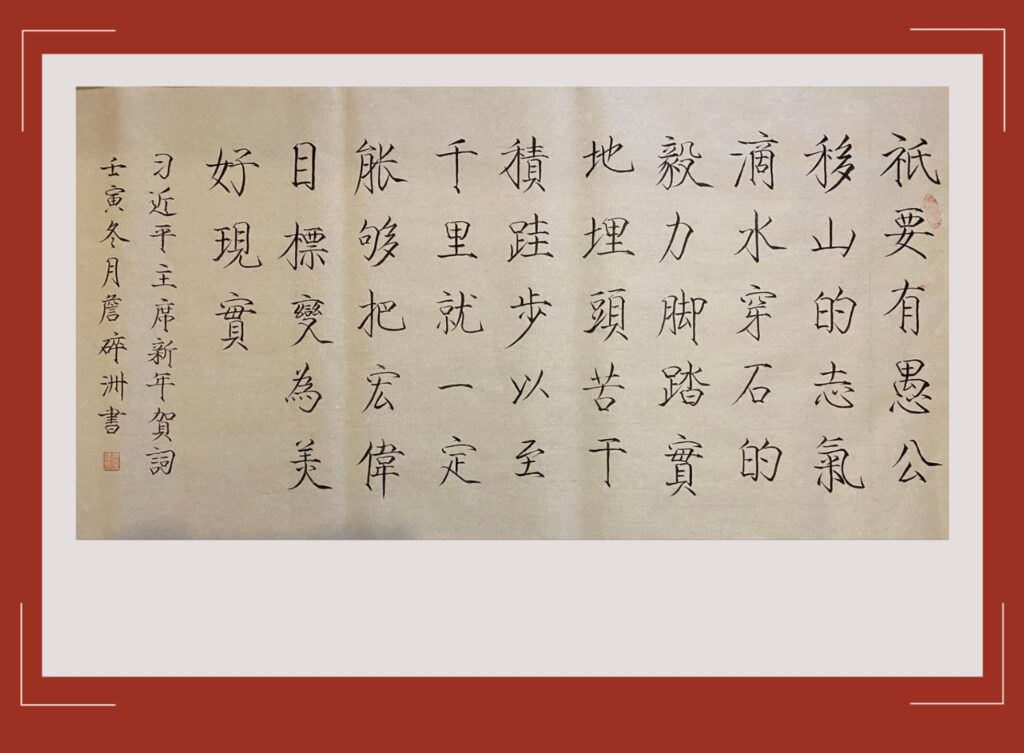 祇要有愚公
移山的志氣
滴水穿石的
毅力脚踏實
地埋頭苦干
積跬步以至
千里就一定
能够把宏偉
目標變為美
好現實
习近平主席新年賀詞
壬寅冬月詹碎洲書